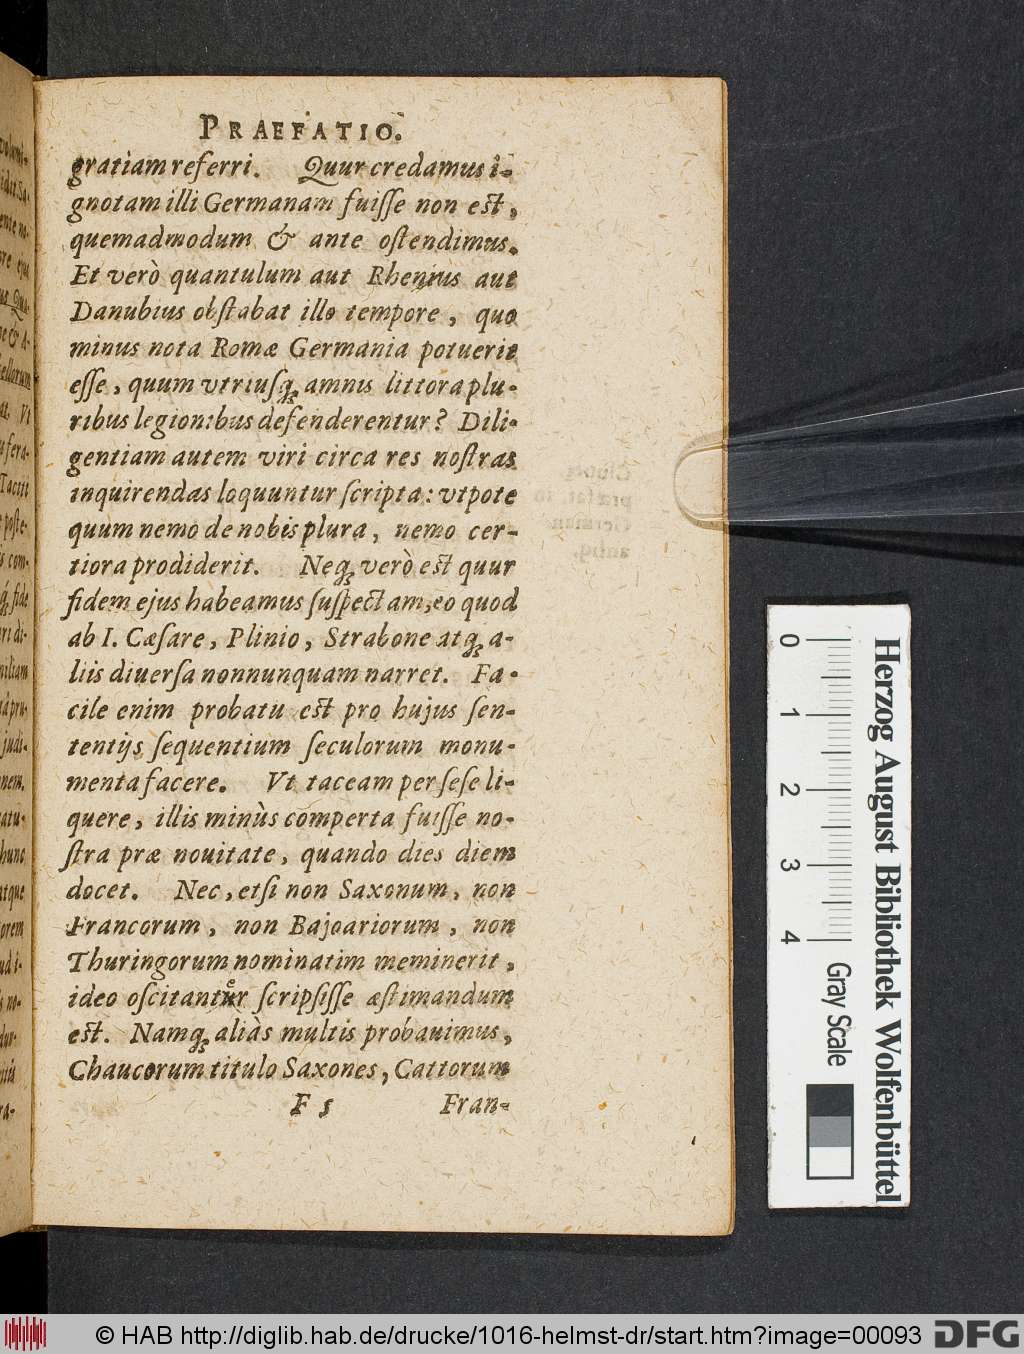 PRAEFATIO.
gratiam referri. Quur credamus i-
gnotam illi Germanam fuiſſe non eſt,
quemadmodum & ante oſtendimus.
Et verò quantulum aut Rhenus aut
Danubius obſtabat illo tempore, quo
minus nota Romæ Germania potuerit
eſſe, quum vtriuſq; amnis littora plu-
ribus legionibus defenderentur? Dili-
gentiam autem viri circa res noſtras
inquirendas loquuntur ſcripta: vtpote
quum nemo de nobis plura, nemo cer-
tiora prodiderit. Neq; verò eſt quur
fidem ejus habeamus ſuſpectam, eo quod
ab I. Cæſare, Plinio, Strabone atq; a-
liis diuerſa nonnunquam narret. Fa-
cile enim probatu eſt pro hujus ſen-
tentijs ſequentium ſeculorum monu-
menta facere. Vt taceam per ſeſe li-
quere, illis minùs comperta fuiſſe no-
ſtra præ nouitate, quando dies diem
docet. Nec, etſi non Saxonum, non
Francorum, non Bajoariorum, non
Thuringorum nominatim meminerit,
ideo oſcitanter ſcripſiſſe æſtimandum
eſt. Namq; aliàs multis probauimus,
Chaucorum titulo Saxones, Cattorum
F 5 Fran-
Herzog August Bibliothek Wolfenbüttel
0 1 2 3 4 Gray Scale
© HAB http://diglib.hab.de/drucke/1016-helmst-dr/start.htm?image=00093 DFG